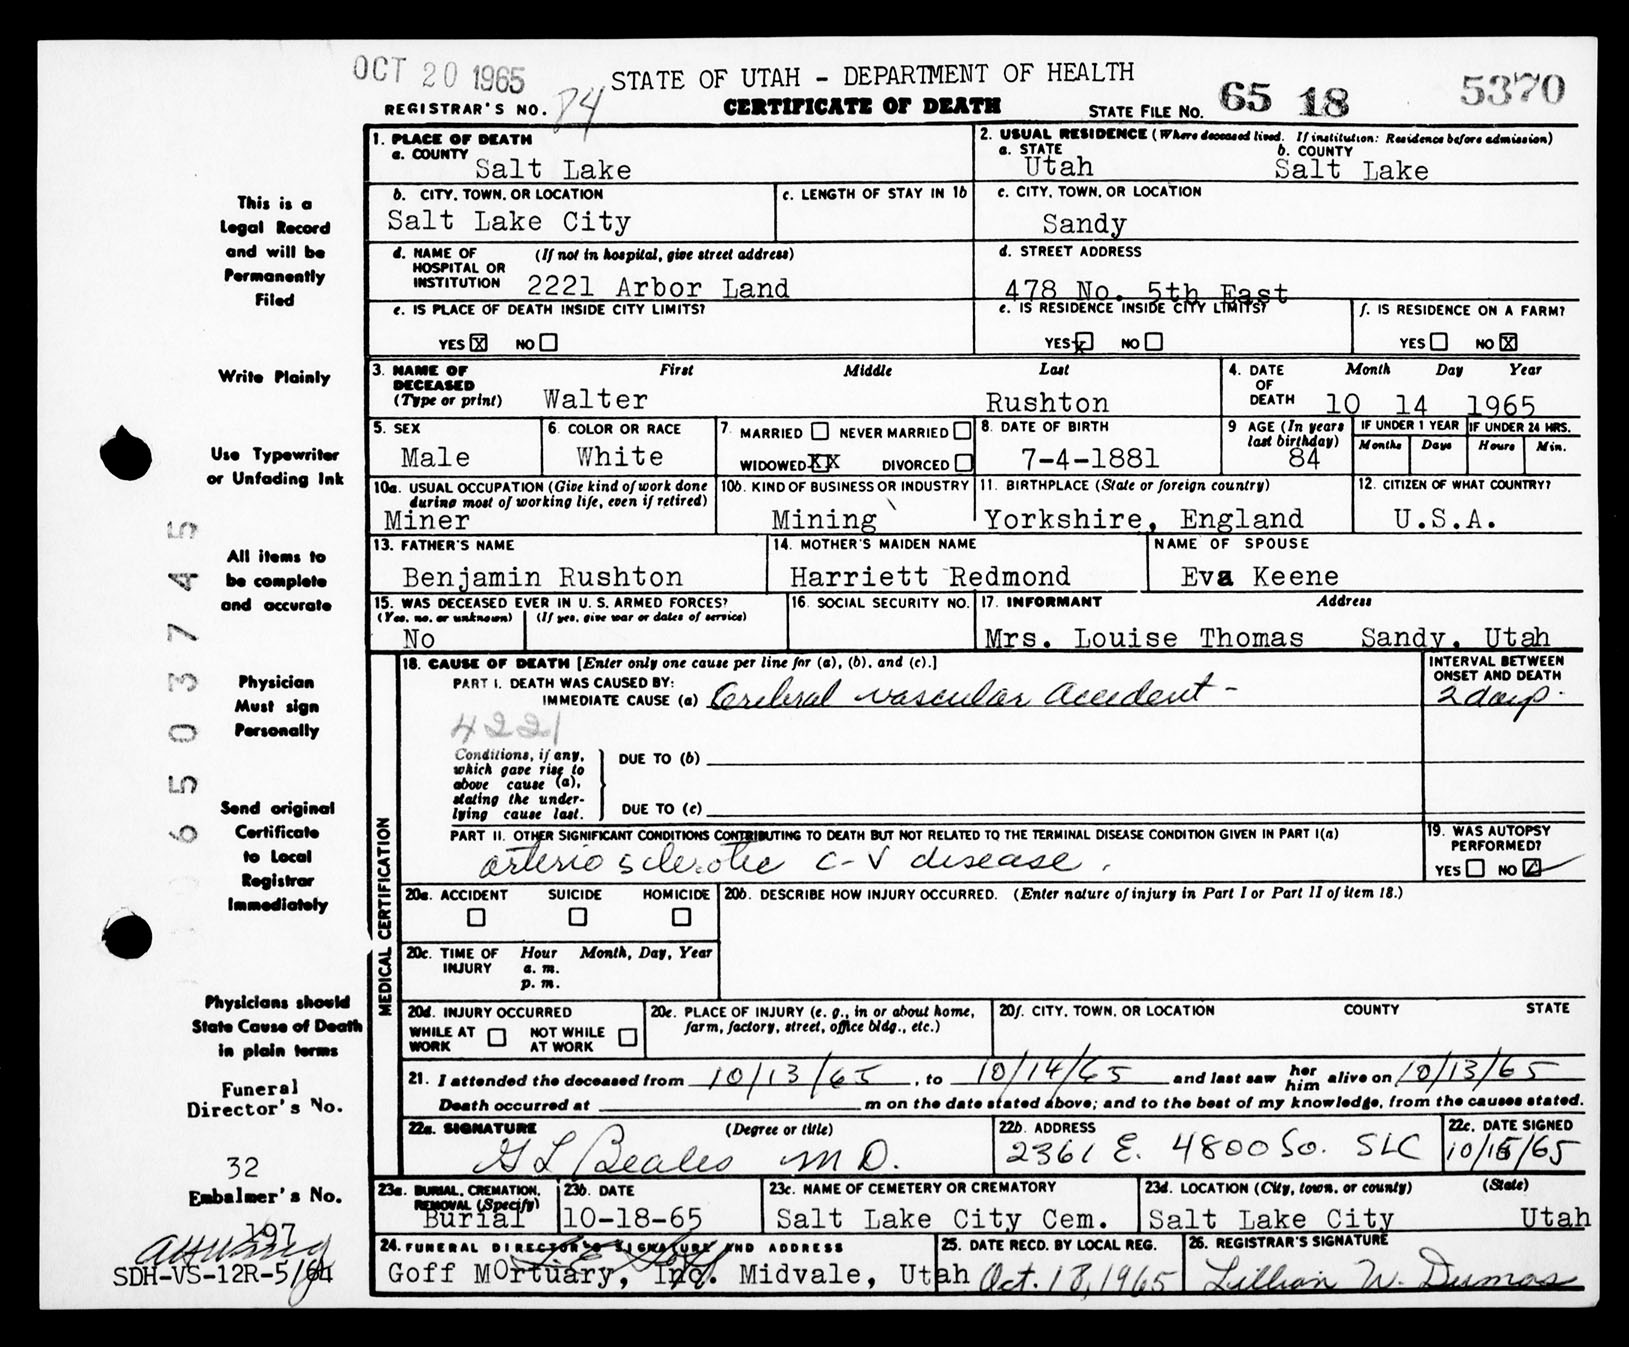 OCT 20 1965
STATE OF UTAH - DEPARTMENT OF HEALTH
REGISTRAR'S NO. 84
CERTIFICATE OF DEATH
STATE FILE NO. 65 18 5370
1. PLACE OF DEATH
a. COUNTY
Salt Lake
2. USUAL RESIDENCE (Where deceased lived. If institution: Residence before admission)
a. STATE b. COUNTY
Utah Salt Lake
b. CITY, TOWN, OR LOCATION
Salt Lake City
c. LENGTH OF STAY IN 1b
c. CITY, TOWN, OR LOCATION
Sandy
d. NAME OF HOSPITAL OR INSTITUTION (If not in hospital, give street address)
2221 Arbor Land
d. STREET ADDRESS
478 No. 5th East
e. IS PLACE OF DEATH INSIDE CITY LIMITS?
YES X NO
e. IS RESIDENCE INSIDE CITY LIMITS?
YES X NO
f. IS RESIDENCE ON A FARM?
YES NO X
3. NAME OF DECEASED (Type or print) First Middle Last
Walter Rushton
4. DATE OF DEATH Month Day Year
10 14 1965
5. SEX
Male
6. COLOR OR RACE
White
7. MARRIED NEVER MARRIED
WIDOWED XX DIVORCED
8. DATE OF BIRTH
7-4-1881
9 AGE (In years last birthday)
84
IF UNDER 1 YEAR IF UNDER 24 HRS.
Months Days Hours Min.
10a. USUAL OCCUPATION (Give kind of work done during most of working life, even if retired)
Miner
10b. KIND OF BUSINESS OR INDUSTRY
Mining
11. BIRTHPLACE (State or foreign country)
Yorkshire, England
12. CITIZEN OF WHAT COUNTRY?
U.S.A.
13. FATHER'S NAME
Benjamin Rushton
14. MOTHER'S MAIDEN NAME
Harriett Redmond
NAME OF SPOUSE
Eva Keene
15. WAS DECEASED EVER IN U. S. ARMED FORCES?
(Yes, no, or unknown) (If yes, give war or dates of service)
No
16. SOCIAL SECURITY NO.
17. INFORMANT Address
Mrs. Louise Thomas Sandy, Utah
18. CAUSE OF DEATH [Enter only one cause per line for (a), (b), and (c).]
INTERVAL BETWEEN ONSET AND DEATH
PART I. DEATH WAS CAUSED BY:
IMMEDIATE CAUSE (a) Cerebral vascular accident - 2 days.
4221
Conditions, if any, which gave rise to above cause (a), stating the underlying cause last.
DUE TO (b)
DUE TO (c)
PART II. OTHER SIGNIFICANT CONDITIONS CONTRIBUTING TO DEATH BUT NOT RELATED TO THE TERMINAL DISEASE CONDITION GIVEN IN PART I(a)
arteriosclerotic C-V disease.
19. WAS AUTOPSY PERFORMED?
YES NO
MEDICAL CERTIFICATION
20a. ACCIDENT SUICIDE HOMICIDE
20b. DESCRIBE HOW INJURY OCCURRED. (Enter nature of injury in Part I or Part II of item 18.)
20c. TIME OF INJURY Hour Month, Day, Year
a. m.
p. m.
20d. INJURY OCCURRED
WHILE AT WORK NOT WHILE AT WORK
20e. PLACE OF INJURY (e. g., in or about home, farm, factory, street, office bldg., etc.)
20f. CITY, TOWN, OR LOCATION COUNTY STATE
21. I attended the deceased from 10/13/65, to 10/14/65 and last saw her him alive on 10/13/65
Death occurred at m on the date stated above; and to the best of my knowledge, from the causes stated.
22a. SIGNATURE (Degree or title)
G L Beales M D.
22b. ADDRESS
2361 E. 4800 So. SLC
22c. DATE SIGNED
10/15/65
23a. BURIAL, CREMATION, REMOVAL (Specify)
Burial
23b. DATE
10-18-65
23c. NAME OF CEMETERY OR CREMATORY
Salt Lake City Cem.
23d. LOCATION (City, town, or county) (State)
Salt Lake City Utah
24. FUNERAL DIRECTOR'S SIGNATURE AND ADDRESS
Goff Mortuary, Inc. Midvale, Utah
25. DATE RECD. BY LOCAL REG.
Oct. 18, 1965
26. REGISTRAR'S SIGNATURE
Lillian W. Dumas
This is a
Legal Record
and will be
Permanently
Filed
Write Plainly
Use Typewriter
or Unfading Ink
All items to
be complete
and accurate
Physician
Must sign
Personally
Send original
Certificate
to Local
Registrar
Immediately
Physicians should
State Cause of Death
in plain terms
Funeral
Director's No.
32
Embalmer's No.
197
SDH-VS-12R-5/64
6503745